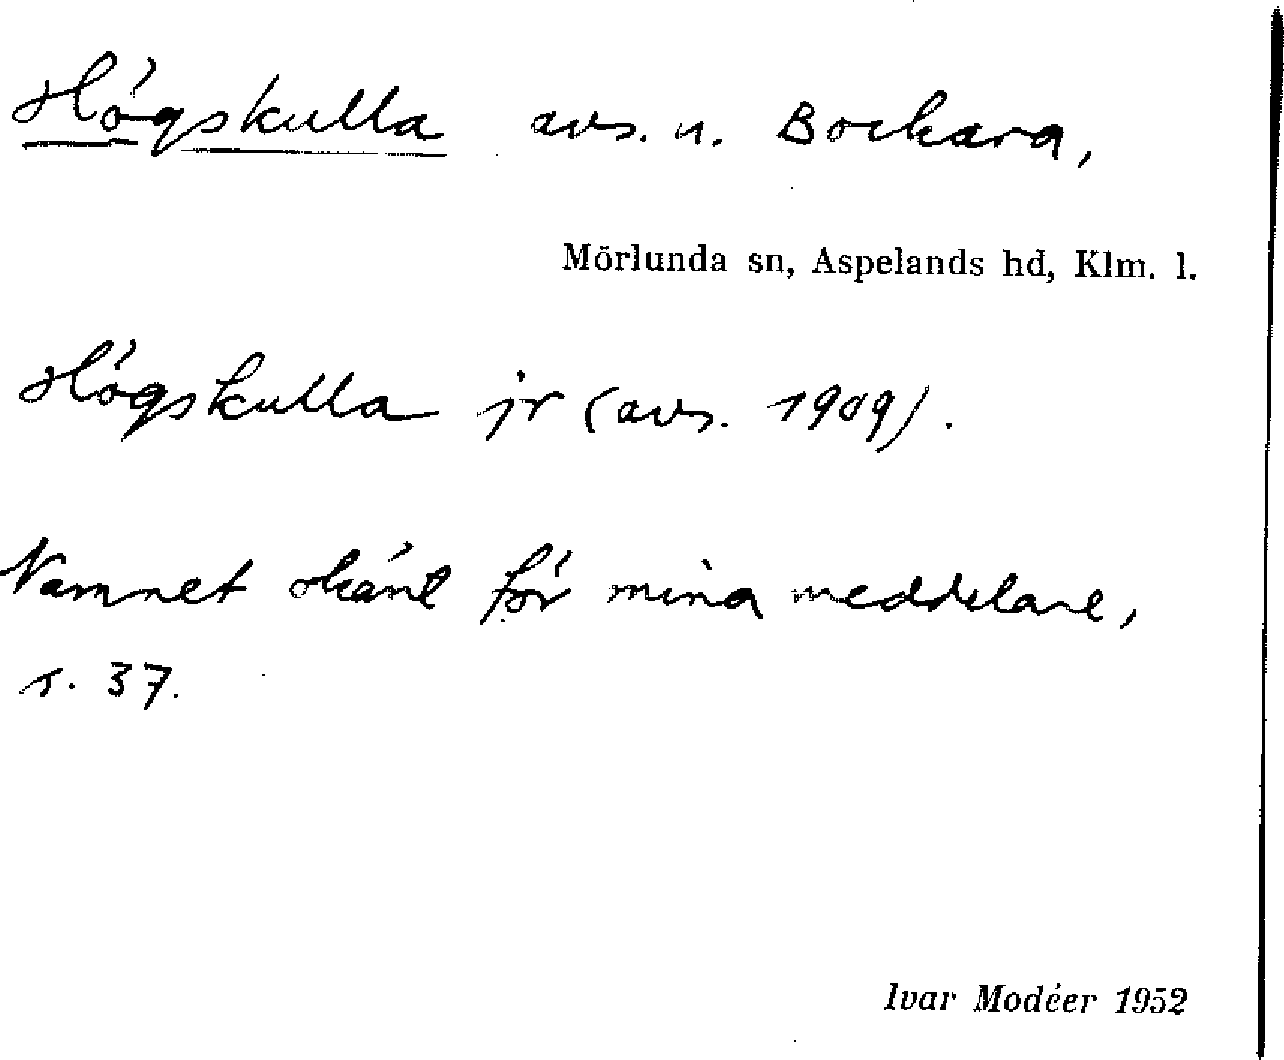 Högskulla avs. u. Bockara,
Mörlunda sn, Aspelands hd, Klm. l.
Högskulla jr (avs. 1909).
Namnet okänt för mina meddelare,
s. 37.
Ivar Modéer 1952